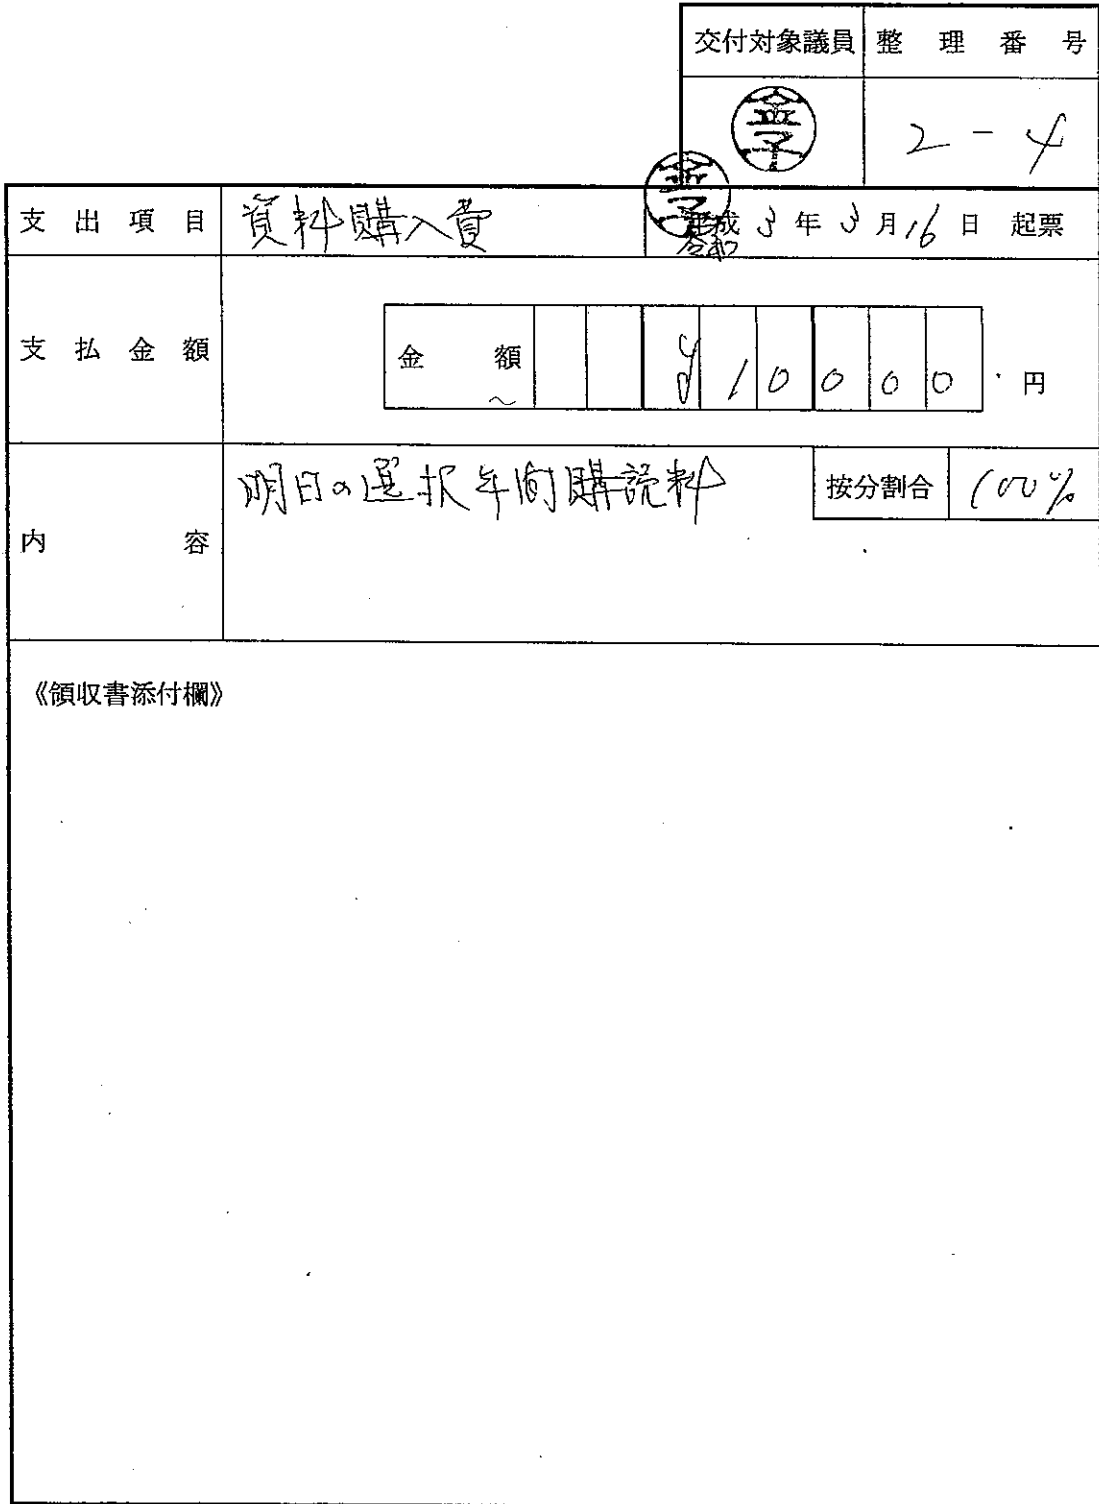 交付対象議員 整理番号
金子 2-4
支出項目 資料購入費 金子 平成 令和 3年3月16日 起票
支払金額 金額 ¥10000 円
明日の選択年間購読料 按分割合 100%
内容
《領収書添付欄》